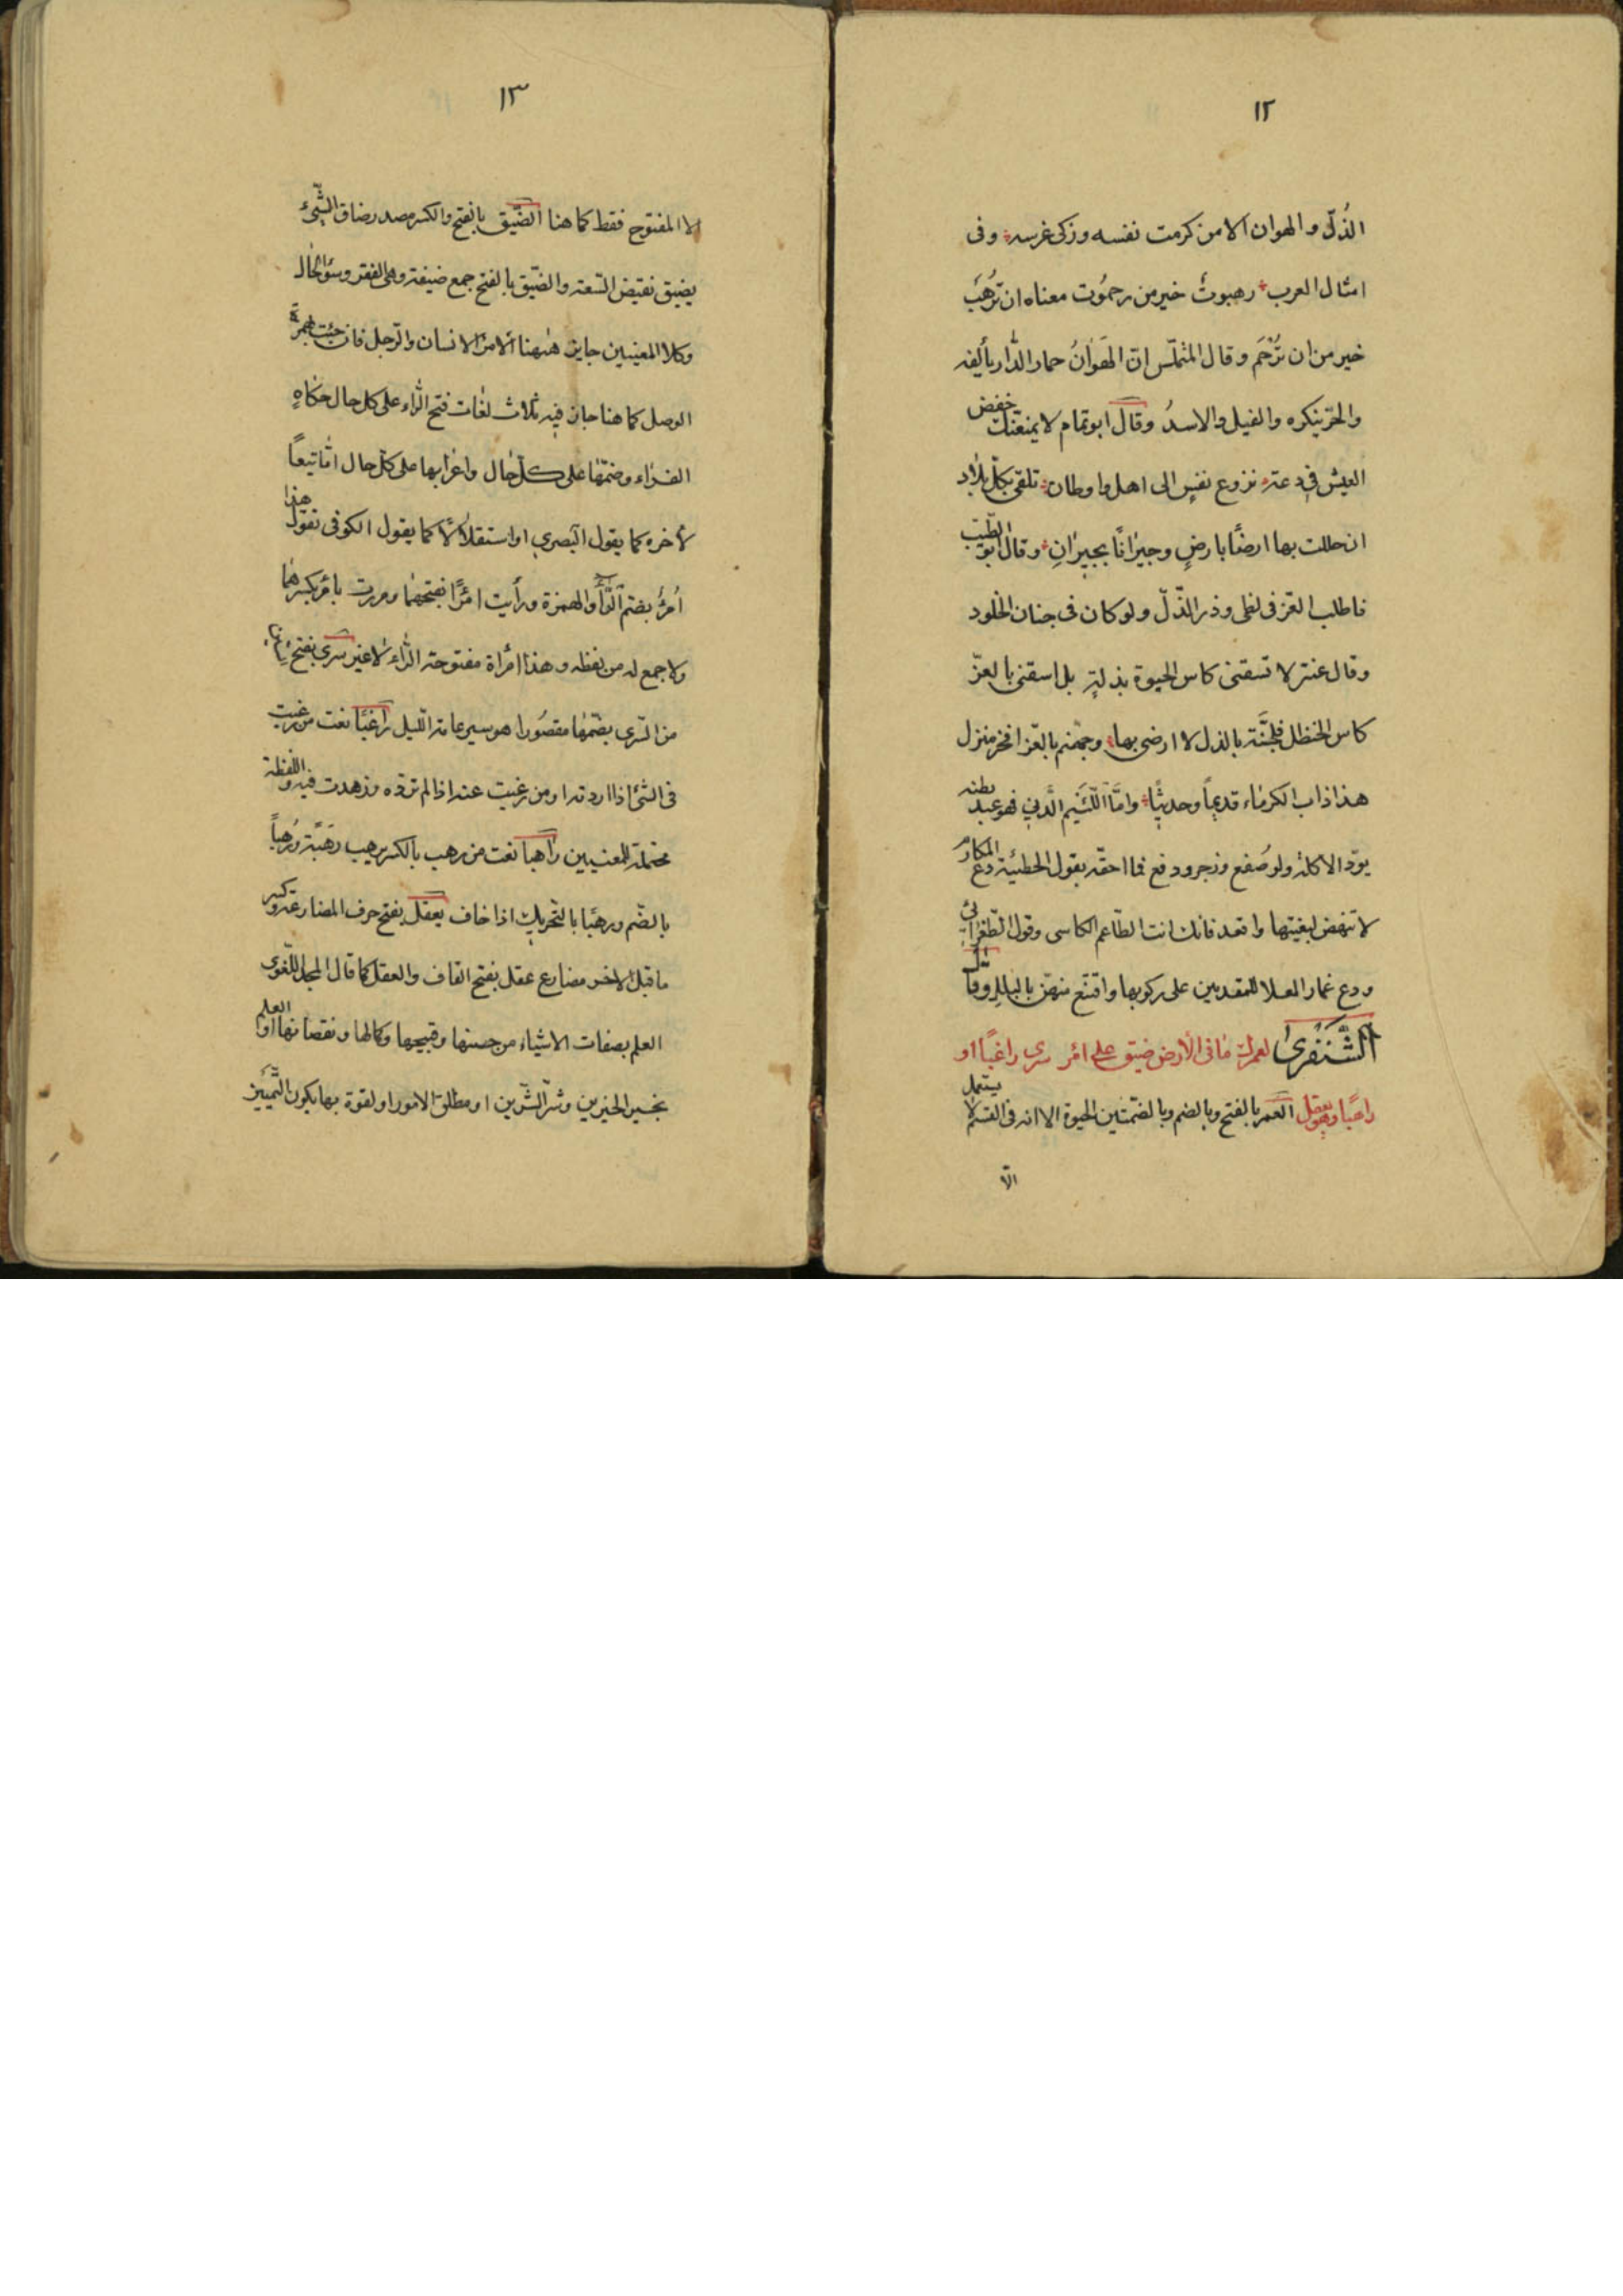 ١٢
الذُلّ والهوان الا من كرمت نفسه وزكى غرسه وفى
امثال العرب رهبوتٌ خير من رحمُوت معناه ان تَرْهَبَ
خير من ان تُرْحَم وقال المتملّس انّ الهَوٰانُ حمار الدّار يألفه
والحرّ ينكره والفيل والاسدُ وقال ابو تمام لا يمنعنّك خفض
العيش فى دعة نزوع نفسٍ الى اهل واوطان تلقى بكلّ بلاد
ان حللت بها ارضًا بارضٍ وجيرٰانًا بجيرٰانِ وقال ابو الطّيب
فاطلب العزّ فى لظى وذر الذّلّ ولو كان فى جنان الخلود
وقال عنتر لا تسقنى كاس الحيوة بذلةٍ بل اسقنى بالعزّ
كاس الحنظل فلجنَّة بالذل لا ارضى بها وجهنم بالعزّ افخر منزل
هذا داب الكرمٰاء قديماً وحديثًا وامّا اللّئيم الدّنى فهو عبد بطنه
يودّ الاكلة ولو صُفع وزجر ودفع فما احقّه بقول الحطيئة دع المكارم
لا تنهض لبغيتها واقعد فانك انت الطّاعم الكاسى وقول الطّغرٰائى
ودع غمار العلا للمقدمين على ركوبها واقتنع منهنّ بالبلل وقال
الشَّنْفَرىٰ لعمرك مٰا فى الأرض ضيق على امرٍ سرى راغبًا او
راهبًا وهو يعقل العمر بالفتح وبالضم وبالضمّتين الحيوة الا انه فى القسم لا يستعمل
الّا
١٣
الا المفتوح فقط كما هنا الضّيق بالفتح والكسر مصدر ضاق الشّئ
يضيق نقيض السّعة والضّيق بالفتح جمع ضيقة وهى الفقر وسؤ الحٰال
وكلا المعنيين جايز هٰهنا الامرٔ الانسان والرّجل فان جئت بهمزة
الوصل كما هنا جاز فيه ثلاث لغات فتح الرّاء على كل حال حكٰاهٍ
الفرّاء وضمّهٰا على كلّ حٰال واعرٰابها على كلّ حال امّا تبعاً
لأخره كما يقول البصرى او استقلٰالًا كما يقول الكوفى تقول هذا
اُمرُؤٌ بضم الرّاء والهمزة ورأيت امرًأ بفتحهمٰا ومررت بامرءٍ بكسرهٰما
ولا جمع له من لفظه وهذا امرأة مفتوحة الرّاء لٰا غير سرى بفتح
من السّرى بضمّهٰا مقصُورا هو سير عامة اللّيل رٰاغبًا نعت من رغبت
فى الشئ اذا اردته او من رغبت عنه اذا لم ترده وزهدت فيه واللفظة
محتملة للمعنيين رٰاهباً نعت من رهب بالكسر يرهب رَهَبَّة ورُهباً
بالضّم ورهبًا بالتّحريك اذا خاف يعقل بفتح حرف المضارعة وكسر
ما قبل الاخر مضارع عقل بفتح القاف والعقل كما قال المجد اللّغوى
العلم بصفات الاشياء من حسنها وقبيحها وكمالها ونقصانها او العلم
بخير الخيرين وشرّ الشّرّين او مطلق الامور او لقوة بها يكون التّمييز